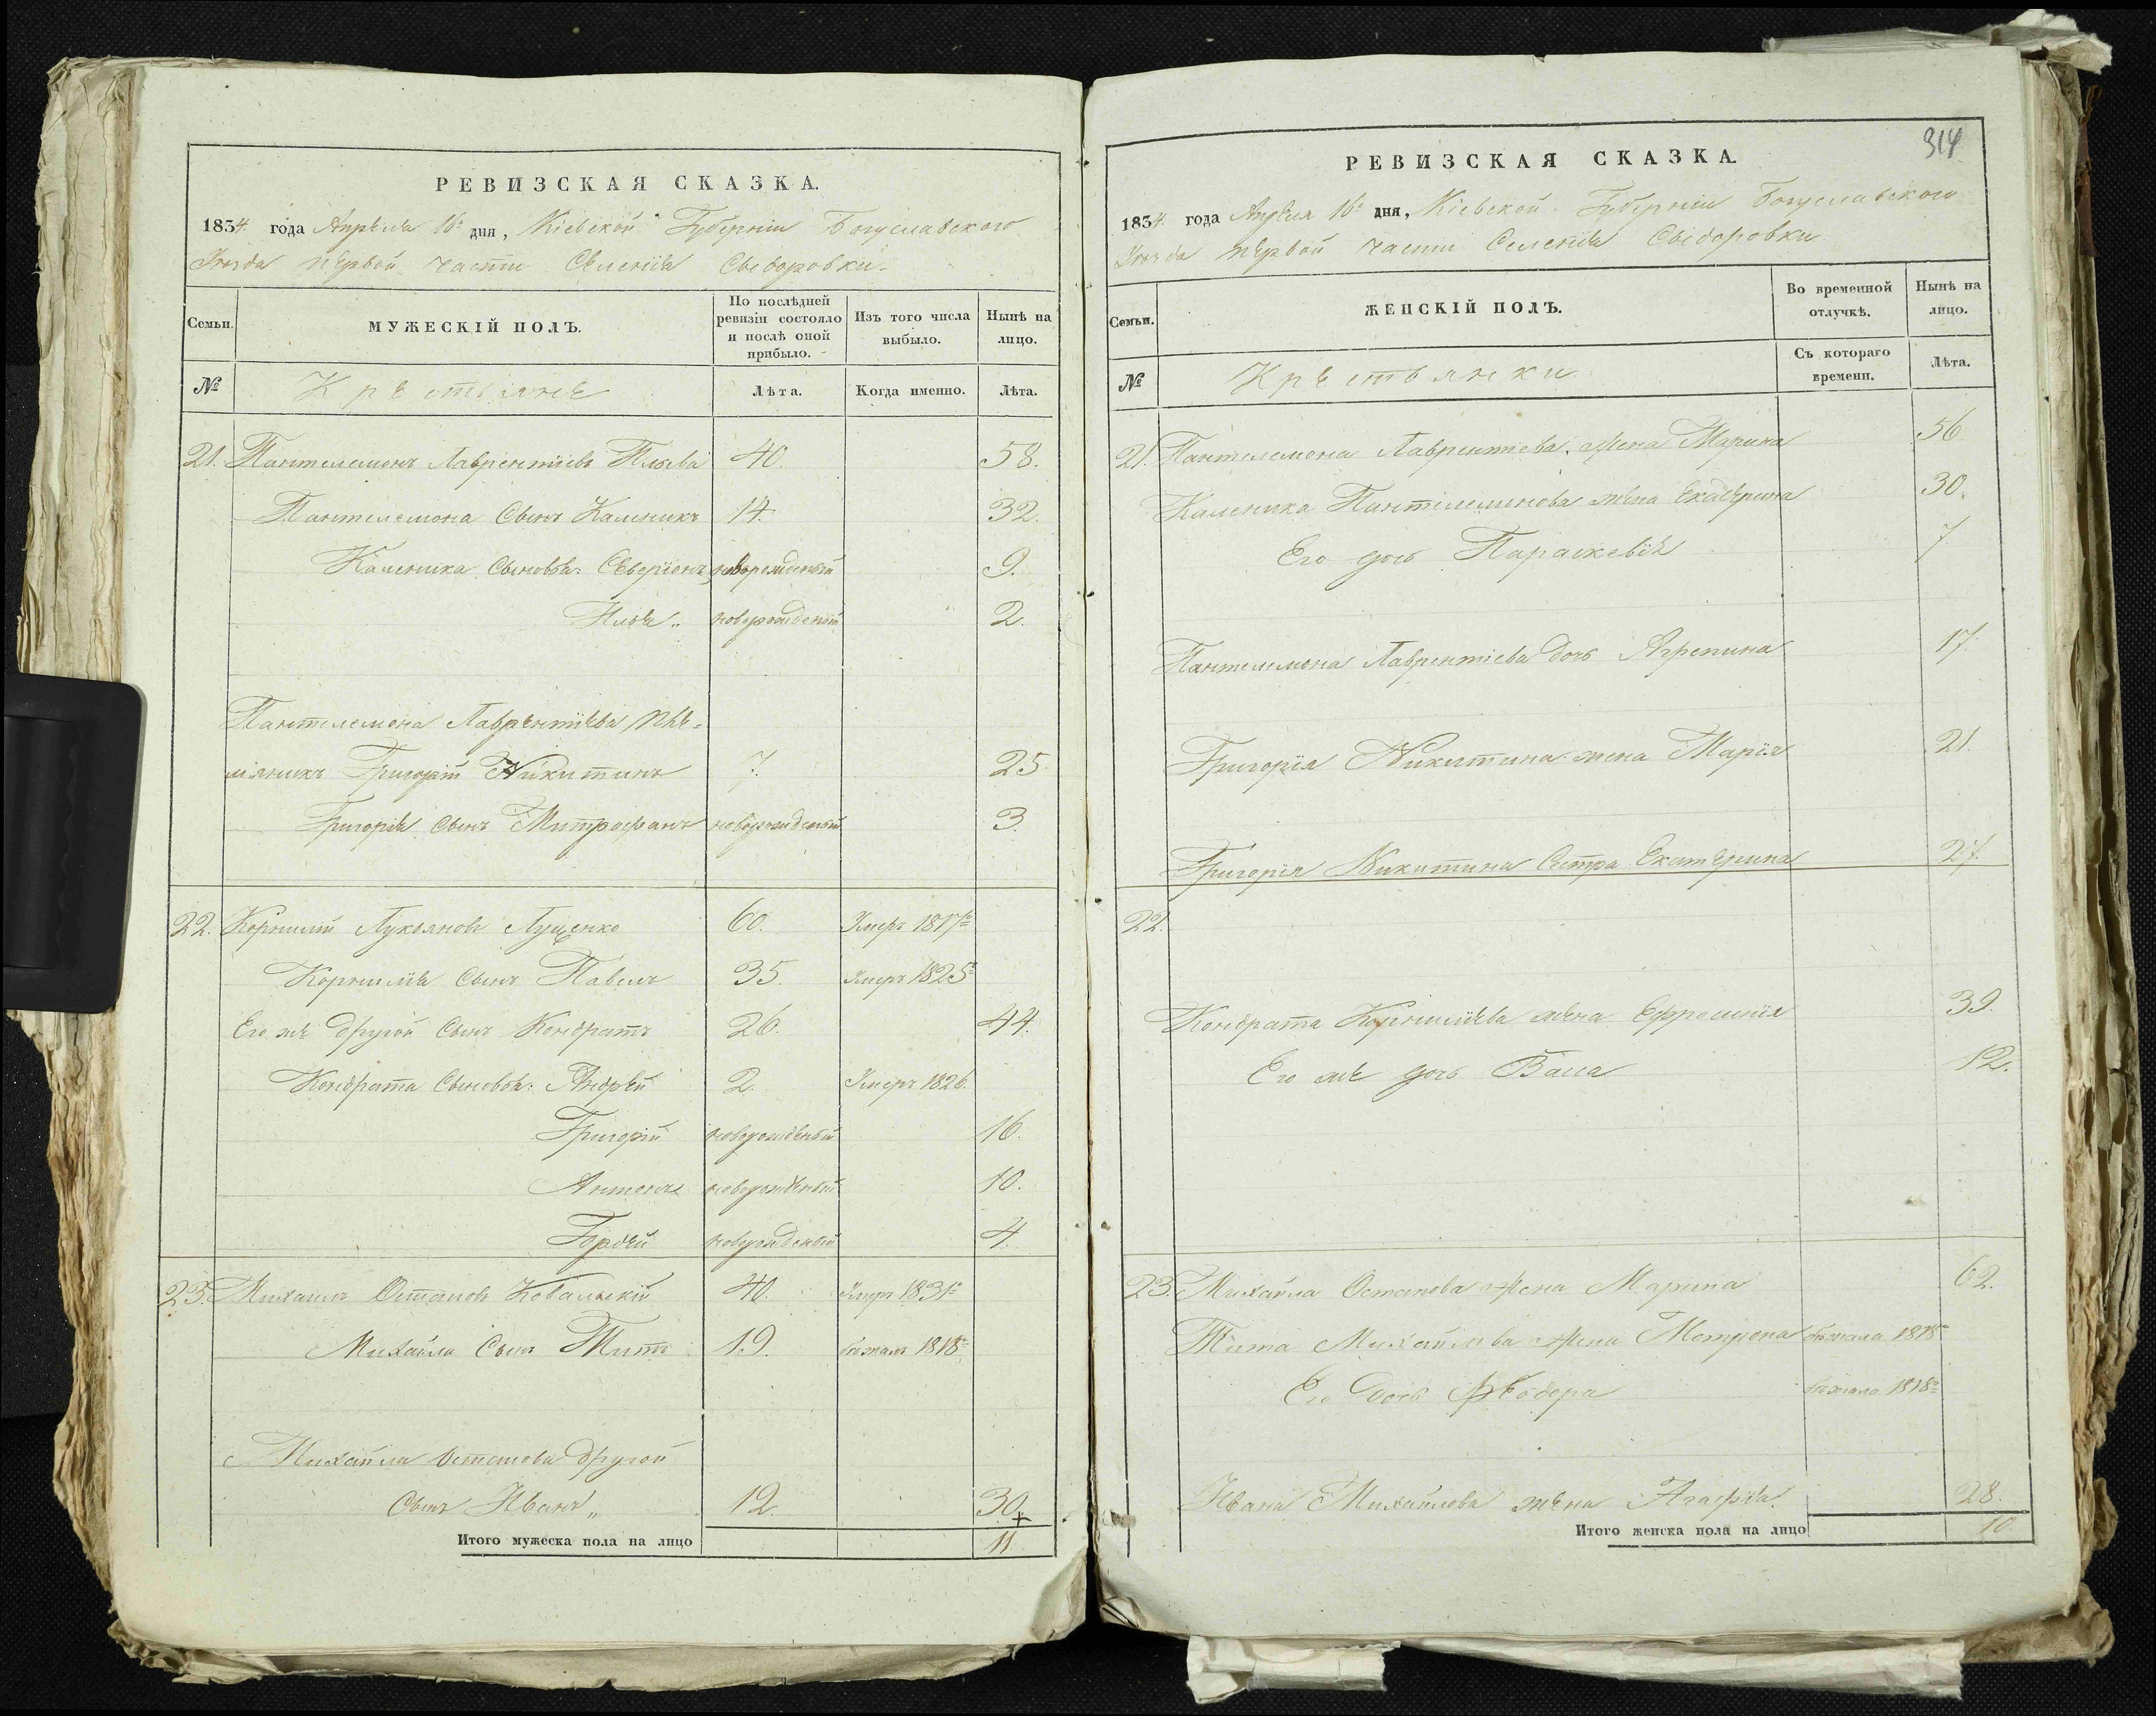 РЕВИЗСКАЯ СКАЗКА.
1834 года Апреля 16 дня, Кіевской Губерніи Богуславского
Уезда первой части Селенія Сыдоровки.
Семьи.
МУЖЕСКІЙ ПОЛЪ.
По послѣдней ревизіи состояло и послѣ оной прибыло.
Изъ того числа выбыло.
Нынѣ на лицо.
№ Крестьяне Лѣта. Когда именно. Лѣта.
21. Пантелемонъ Лаврентіевъ 40. 58.
Пантелемона Сынъ Каленикъ 14. 32.
Каленика Сыновья: Северіонъ новорожденый 9.
Илья новорожденый 2.
Пантелемона Лаврентіева пле=
мянникъ Григорій Никитинъ 7. 25.
Григорія Сынъ Митрофанъ новорожденый 3.
22. Корнилій Лукяновъ Луценко 60. Умеръ 1817го
Корнилія Сынъ Павелъ 35. Умеръ 1825го
Его же другой Сынъ Кондратъ 26. 44.
Кондрата Сыновья: Андрей 2. Умеръ 1826.
Григорій новорожденый 16.
Антонъ новорожденый 10.
Гордей новорожденый 4.
23. Михаилъ Остаповъ Ковальскій 40. Умеръ 1831го
Михайла Сынъ Титъ 19. бежалъ 1818го
Михайла Остапова другой
Сынъ Иванъ 12. 30.
Итого мужеска пола на лицо 11
314
РЕВИЗСКАЯ СКАЗКА.
1834 года Апреля 16 дня, Кіевской Губерніи Богуславского
Уезда первой части Селенія Сыдоровки
Семьи.
ЖЕНСКІЙ ПОЛЪ.
Во временной отлучкѣ.
Нынѣ на лицо.
№ Крестьянки Съ котораго времени. Лѣта.
21. Пантелемона Лаврентіева жена Марина 56
Каленика Пантілемонова жена Екатерина 30.
Его дочь Параскевія 7
Пантелемона Лаврентіева дочь Агрепина 17.
Григорія Никитина жена Марія 21.
Григорія Никитина Сестра Екатерина 27.
22.
Кондрата Корниліева жена Ефросинія 39.
Его же дочь Васа 12.
23. Михайла Остапова жена Марина 62.
Тита Михайлова жена Мотрона бежала 1818го
Его дочь Феодора бежала 1818го
Ивана Михайлова жена Агафія. 28.
Итого женска пола на лицо 10